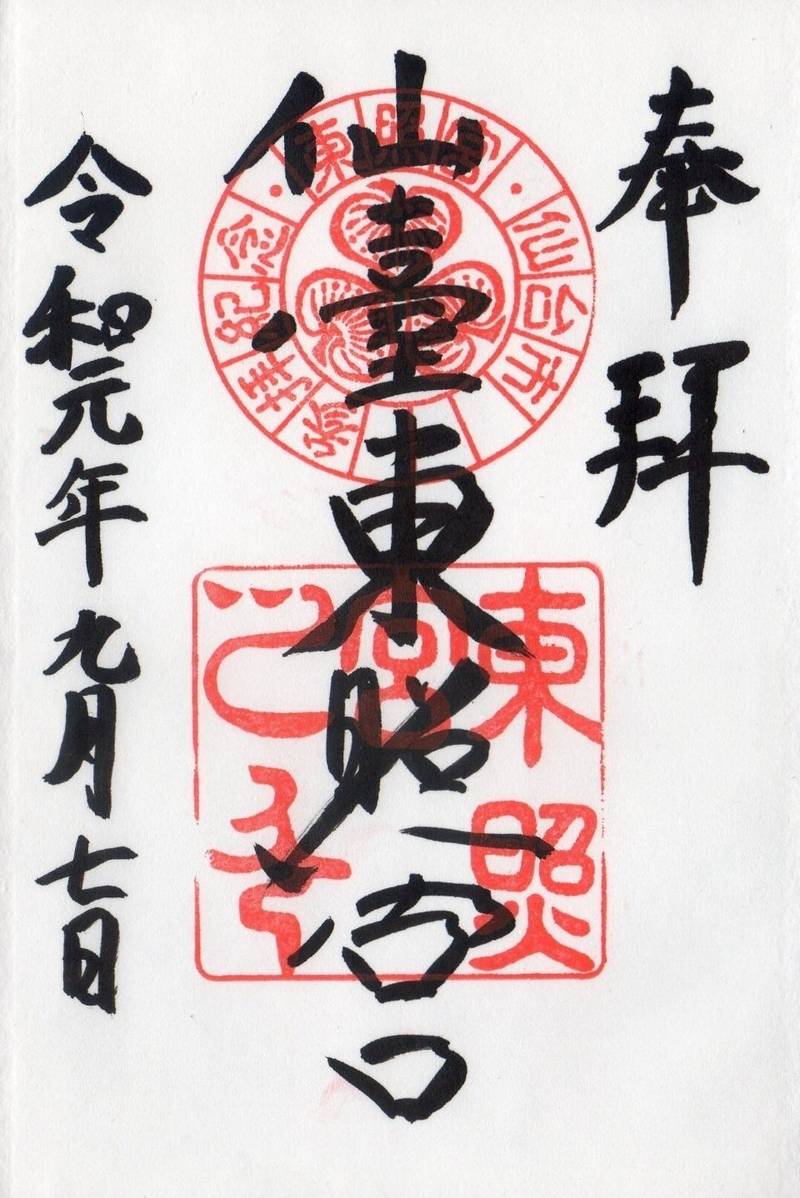 奉拝
仙臺東照宮
令和元年九月七日
仙台市
東照宮
参拝紀念
東照宮之印